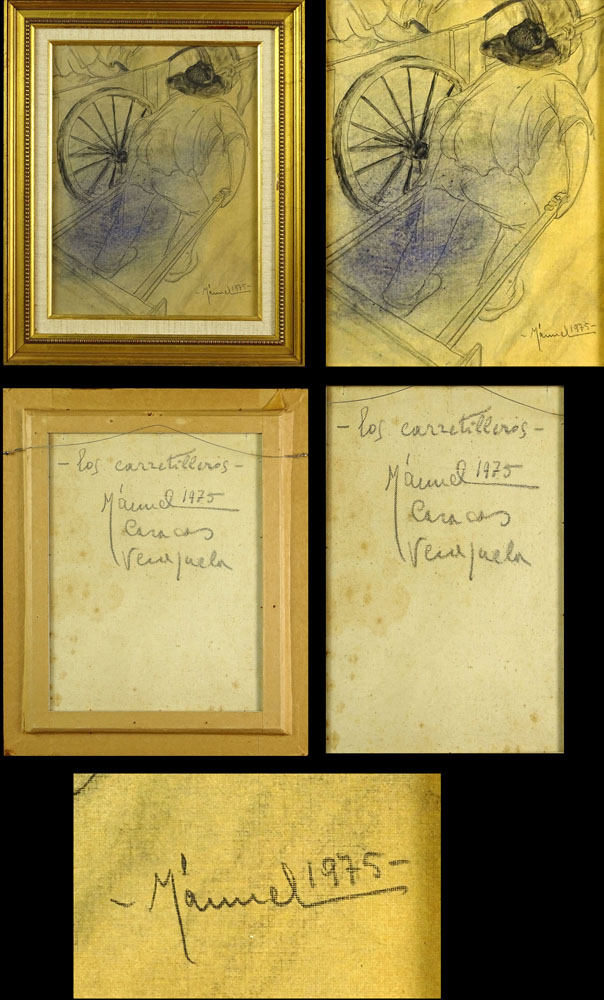 - Mánuel 1975 -
- Mánuel 1975 -
- los carretilleros -
Mánuel 1975
Caracas
Venezuela
- los carretilleros -
Mánuel 1975
Caracas
Venezuela
- Mánuel 1975 -